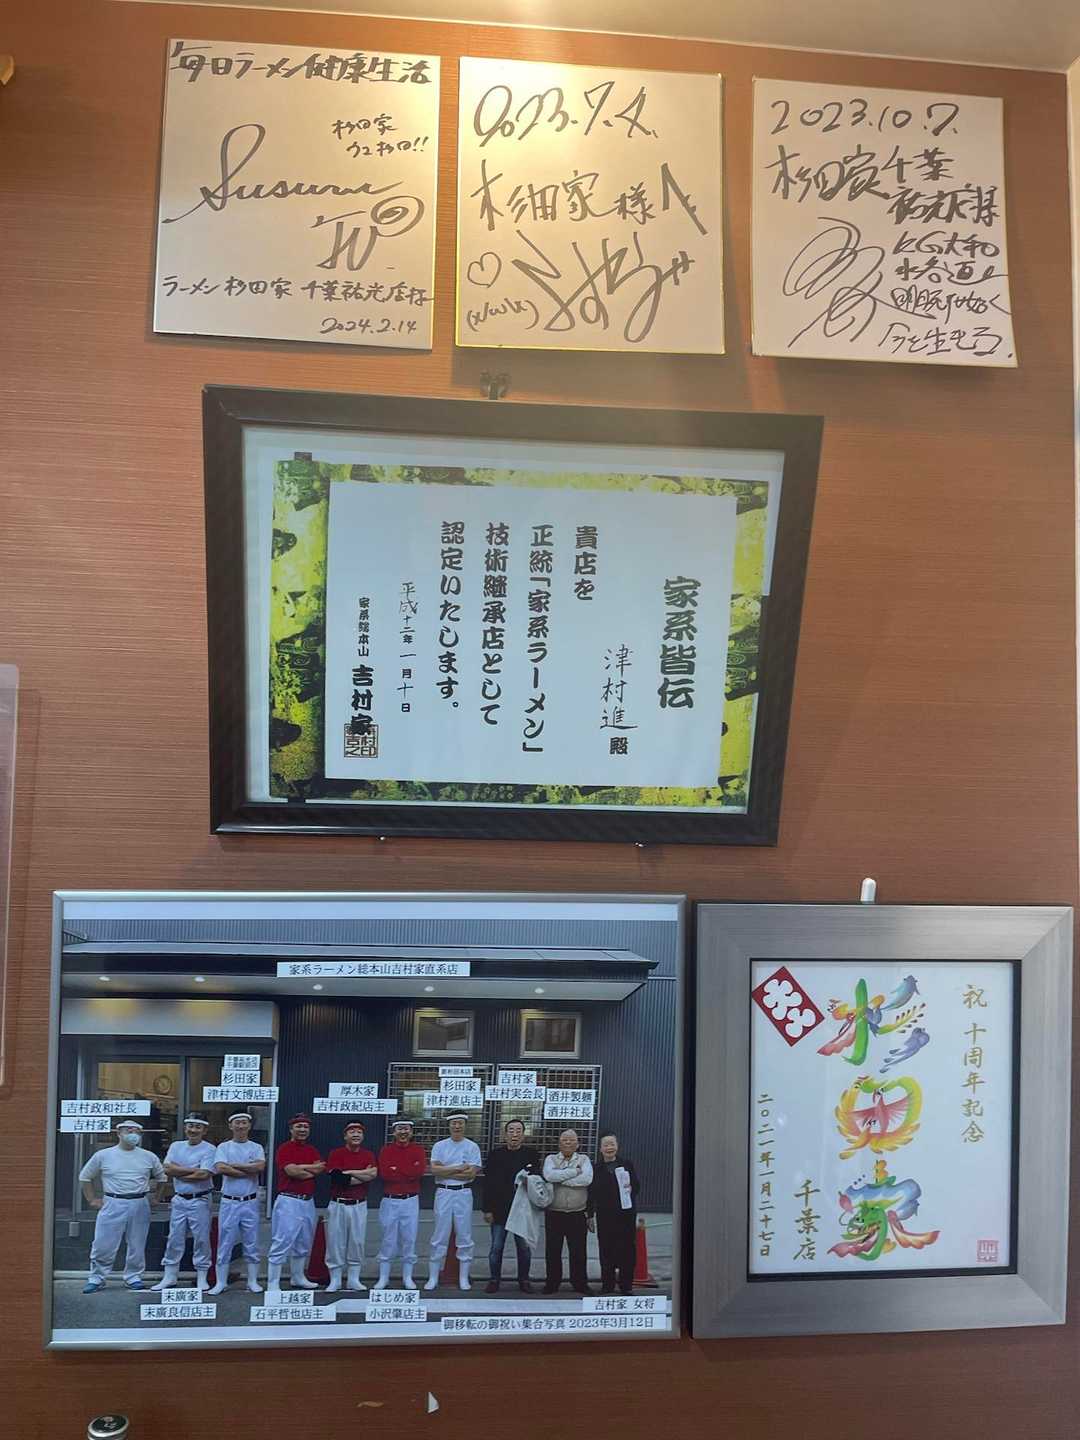 毎日ラーメン健康生活
杉田家
Susuru
TV
ラーメン杉田家 千葉祐光店様
2024.2.14
2023.7.4.
杉田家様
2023.10.7.
杉田家千葉
祐光店様
今を生きる.
家系皆伝
津村進 殿
貴店を
正統「家系ラーメン」
技術継承店として
認定いたします。
平成十二年一月十日
家系総本山 吉村家
家系ラーメン総本山吉村家直系店
吉村政和社長
吉村家
千葉祐光店
千葉駅前店
杉田家
津村文博店主
厚木家
吉村政紀店主
新杉田本店
杉田家
津村進店主
吉村家
吉村実会長
酒井製麺
酒井社長
末廣家
末廣良信店主
上越家
石平哲也店主
はじめ家
小沢肇店主
吉村家 女将
御移転の御祝い集合写真 2023年3月12日
祝 十周年記念
杉田家
千葉店
二〇二一年一月二十七日